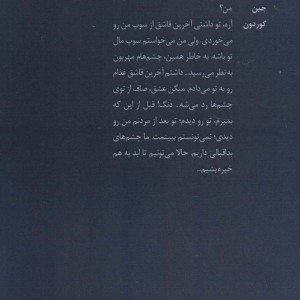 جین من؟
گوردون آره، تو داشتی آخرین قاشق از سوپ من رو
می‌خوردی. ولی من می‌خواستم سوپ مال
تو باشه. به خاطر همین، چشم‌هام مهربون
به نظر می‌رسید... داشتم آخرین قاشق غذام
رو به تو می‌دادم. میگن عشق، صاف از توی
چشم‌ها رد می‌شه... دنگ! قبل از این که
بمیرم، تو رو دیدم؛ تو بعد از مردنم من رو
دیدی؛ نمی‌تونستم ببینمت. ما چشم‌های
بداقبالی داریم. حالا می‌تونیم تا ابد به هم
خیره بشیم...